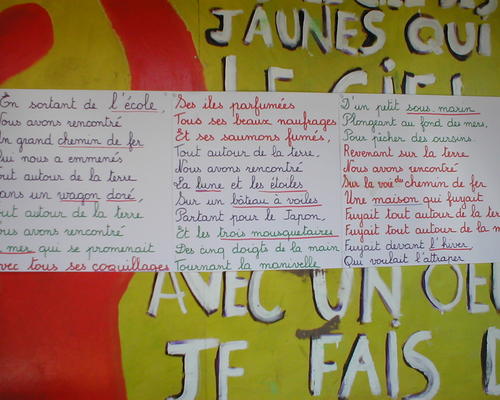 JAUNES QUI
LE CIEL
En sortant de l'école,
Nous avons rencontré
Un grand chemin de fer
Qui nous a emmenés
Tout autour de la terre
Dans un wagon doré,
Tout autour de la terre
Nous avons rencontré
mer qui se promenait
Avec tous ses coquillages
Ses iles parfumées
Tous ses beaux naufrages
Et ses saumons fumés,
Tout autour de la terre,
Nous avons rencontré
La lune et les étoiles
Sur un bâteau à voiles
Partant pour le Japon,
Et les trois mousquetaires
Des cinq doigts de la main
Tournant la manivelle
D'un petit sous.marin
Plongeant au fond des mers,
Pour pêcher des oursins.
Revenant sur la terre
Nous avons rencontré
Sur la voie de chemin de fer
Une maison qui fuyait
Fuyait tout autour de la terre
Fuyait tout autour de la m
Fuyait devant l'hiver,
Qui voulait l'attraper
AVEC UN
JE FAIS